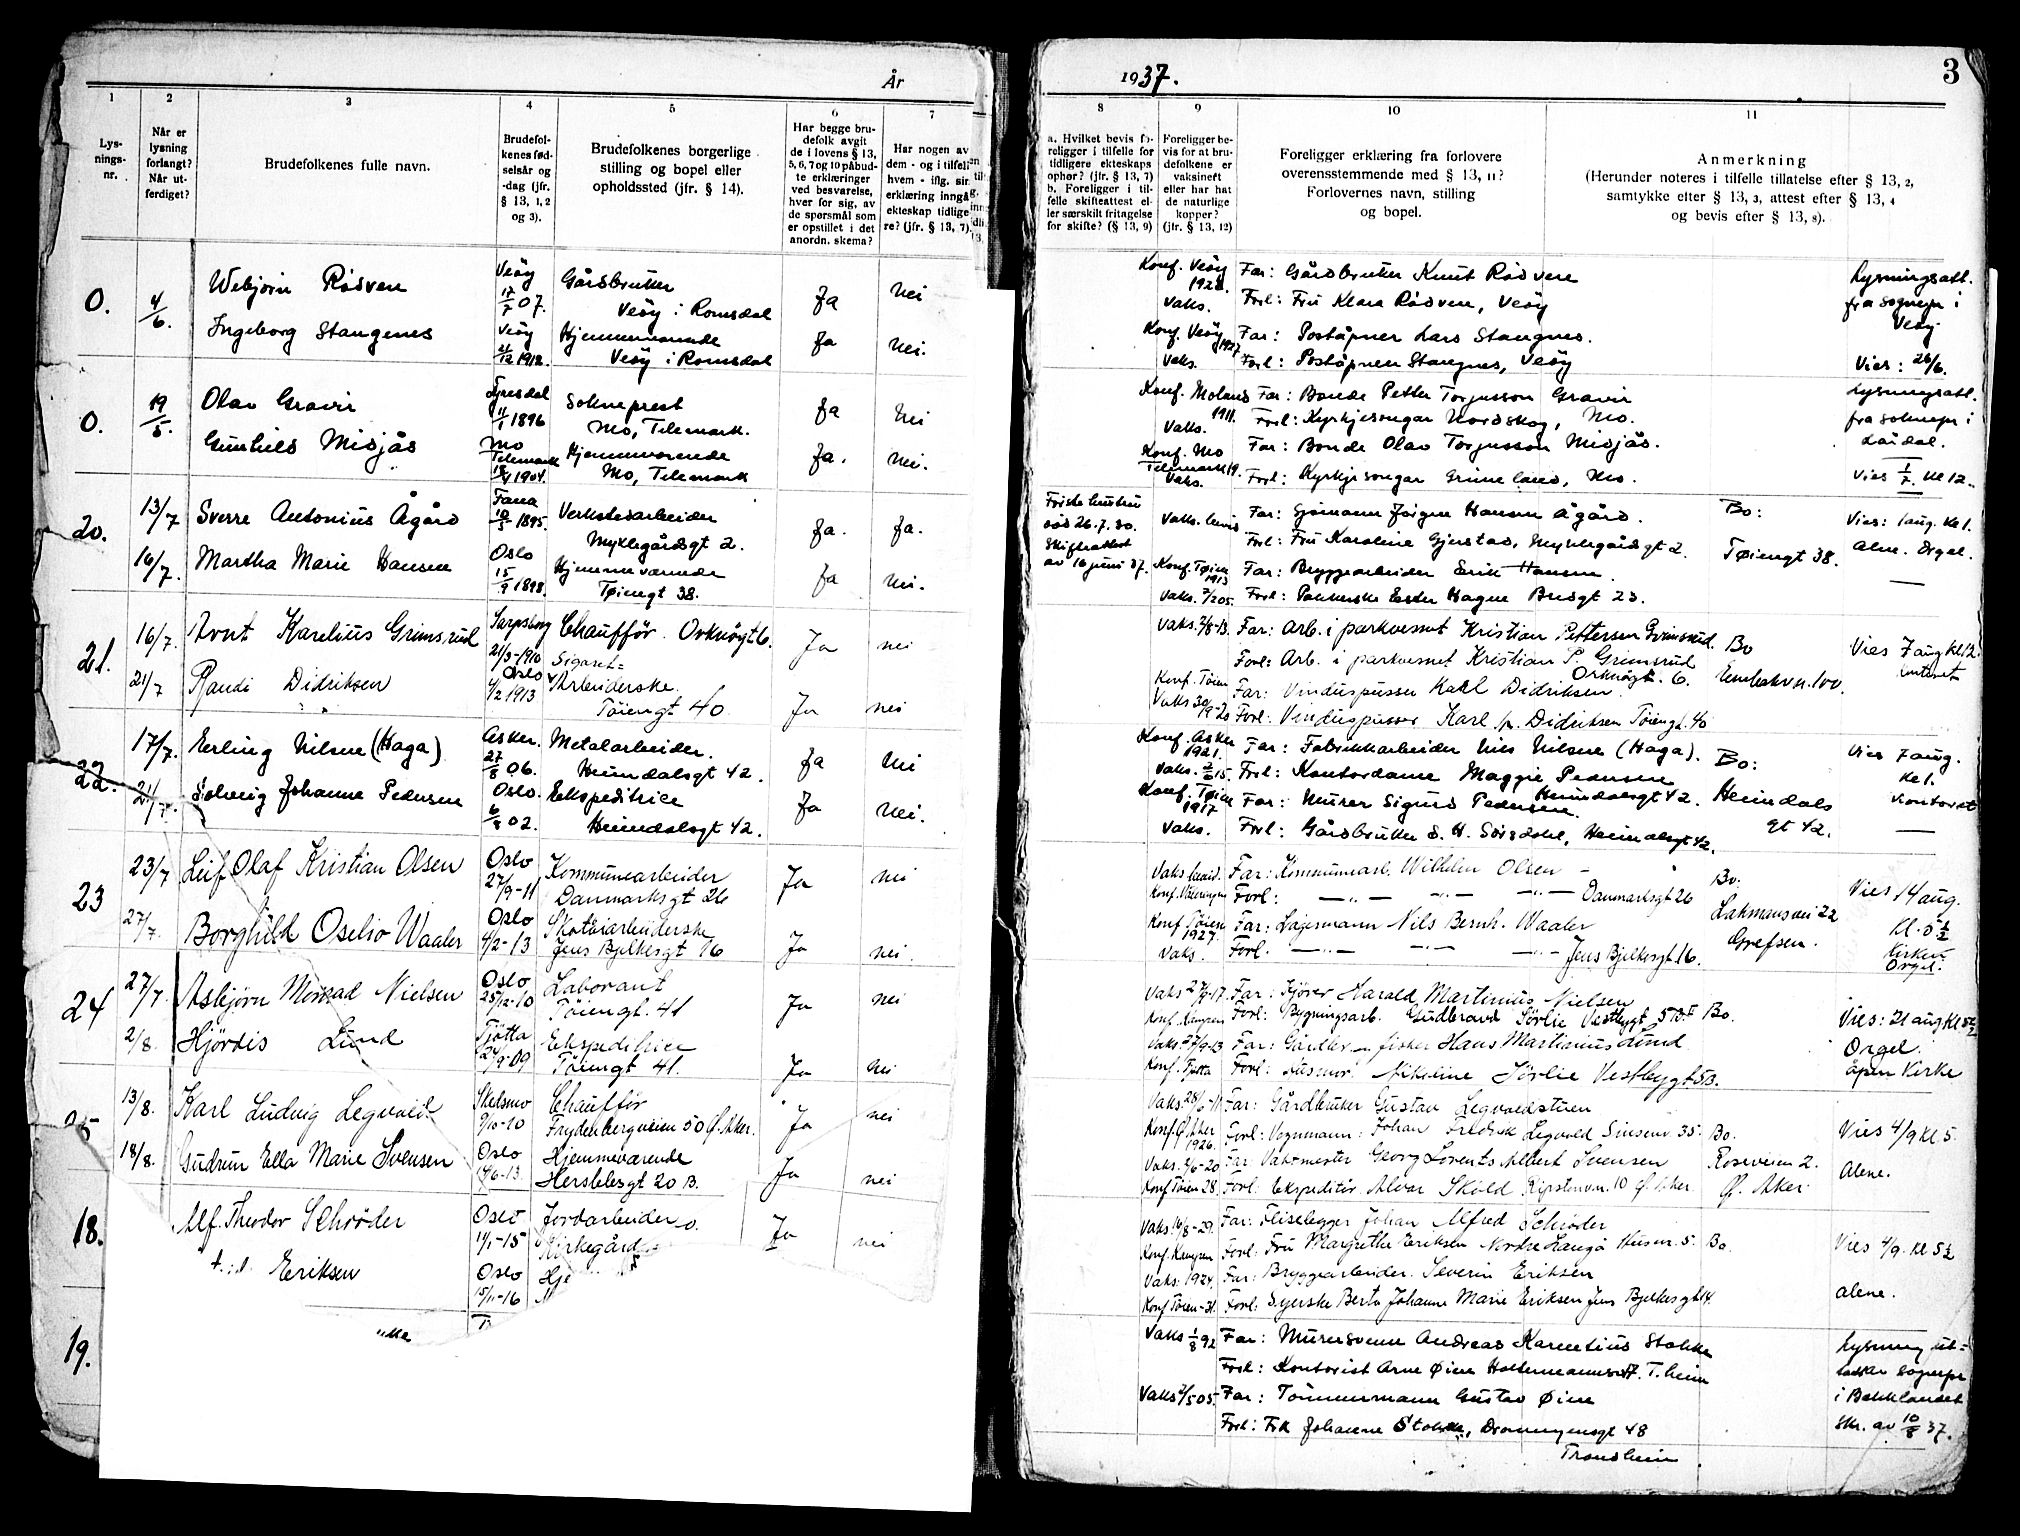 År
1937.
3
1 2 3 4 5 6 7 8 9 10 11
Lys-
nings-
nr.
Når er
lysning
forlangt?
Når ut-
ferdiget?
Brudefolkenes fulle navn.
Brudefol-
kenes fød-
selsår og
-dag (jfr.
§ 13, 1, 2
og 3).
Brudefolkenes borgerlige
stilling og bopel eller
opholdssted (jfr. § 14).
Har begge bru-
defolk avgit
de i lovens § 13,
5, 6, 7 og 10 påbud-
te erklæringer
ved besvarelse,
hver for sig, av
de spørsmål som
er opstillet i det
anordn. skema?
Har nogen av
dem - og i tilfelle
hvem - iflg. sin
erklæring inngå
ekteskap tidlige
re? (jfr. § 13, 7).
a. Hvilket bevis fo-
religger i tilfelle for
tidligere ekteskaps
ophør? (jfr. § 13, 7)
b. Foreligger i til-
felle skifteattest el-
ler særskilt fritagelse
for skifte? (§ 13, 9)
Foreligger be-
vis for at bru-
defolkene er
vaksinert
eller har hat
de naturlige
kopper?
(jfr. § 13, 12)
Foreligger erklæring fra forlovere
overensstemmende med § 13, 11?
Forlovernes navn, stilling
og bopel.
Anmerkning
(Herunder noteres i tilfelle tillatelse efter § 13, 2,
samtykke efter § 13, 3, attest efter § 13, 4
og bevis efter § 13, 8).
0. 4/6. Webjørn Rødven Veøy 17/7 07. Gårdbruker Veøy i Romsdal Ja Nei Konf. Veøy Vaks. Far: Gårdbruker Knut Rødven
Forl: Fru Klara Rødven, Veøy
Lysningsatt. fra sognepr i Veøy
Ingeborg Stangenes Veøy 21/12 1912. Hjemmeværende Veøy i Romsdal Ja Nei. Konf. Veøy 1927 Vaks. Far: Poståpner Lars Stangnes.
Forl: Poståpner Stangnes, Veøy
Vies: 26/6.
0. 19/5. Olav Gravir Fyresdal 11/1 1896 Sokneprest Mo, Telemark. Ja Nei Konf. Moland 1911. Vaks. Far: Bonde Petter Torjusson Gravir
Forl: Kyrkjesongar Nordskog, Mo.
Lysningsatt. fra soknepr i Lårdal.
Gunhild Midjås Mo Telemark 1904. Hjemmeværende Mo, Telemark Ja. Nei. Konf. Mo Telemark 19. Vaks. Far: Bonde Olav Torjusson Midjås.
Forl: Kyrkjesongar Grimeland, Mo.
Vies 1/7. kl 12.
20. 13/7 Sverre Antonius Ågård Fana 10/5 1895. Verkstedarbeider Myklegårdsgt 2. Ja. Ja. Første hustru død 26.7.30. Skifteattest av 16 juni 37. Vaks. bevis Far: Sjømann Jørgen Hansen Ågård.
Forl: Fru Karoline Gjerstad, Myklegårdsgt 2.
Bo: Tøiengt 38.
Vies: 1 aug. kl 1. Alm. Orgel.
16/7. Martha Marie Hansen Oslo 15/9 1898. Hjemmeværende Tøiengt 38. Ja Nei. Konf. Tøien 1913 Vaks. Far: Bryggearbeider Erik Hansen.
Forl: Pakkerske Ester Hagen Brugt 23.
21. 16/7. Arnt Karelius Grimsrud Sarpsborg 21/3-1910 Chauffør. Orknøygt 6. Ja nei Vaks. 2/8-13. Far: Arb. i parkvesnet Kristian Pettersen Grimsrud.
Forl: Arb. i parkvesnet Kristian P. Grimsrud Orknøygt. 6.
Bo
Vies 7 aug kl. 12. kontoret
21/7 Randi Didriksen Oslo 4/2 1913 Sigaret= Arbeiderske. Tøiengt 40 Ja nei Konf. Tøien Vaks Far: Vinduspusser Karl Didriksen.
Forl: Vinduspusser Karl Didriksen Tøiengt. 40
22. 17/7. Erling Nilsen (Haga) Asker. 27/8 06. Metalarbeider. Heimdalsgt 42. Ja Nei Konf. Asker 1921. Vaks. Far: Fabrikkarbeider Nils Nilsen (Haga).
Forl: Kontordame Maggie Pedersen Heimdalsgt 42.
Bo: Heimdals gt 42.
Vies 7 aug. kl 1. kontoret
21/7. Solveig Johanne Pedersen Oslo. 02. Ekspeditrice Heimdalsgt 42. Ja Nei. Konf. Tøien 1917 Vaks. Far: Murer Sigurd Pedersen.
Forl: Gårdbruker S. H. Sørsdahl, Heimdalsgt 42.
23 23/7 Leif Olaf Kristian Olsen Oslo 27/9-11 Kommunearbeider Danmarksgt 26 Ja nei Konf. Vålerengen Far: Kommunearb. Wilhelm Olsen
Forl: Danmarksgt 26
Bo: Lakmansvei 22 Grefsen.
Vies 14 aug. kl. 5 1/2 Kirken Orgel.
27/7. Borghild Oselio Waaler Oslo 4/2-13 Skotøiarbeiderske Jens Bjelkesgt 16 Ja nei. Konf Tøien 1927. Vaks. Far: Lagermann Nils Bernh. Waaler
Forl. Jens Bjelkesgt. 16.
24 27/7. Asbjørn Morkad Nielsen Oslo 25/12-10 Laborant Tøiengt. 41 Ja nei Konf. Kampen Far: Kjører Harald Martinius Nielsen
Forl: Bygningsarb. Gudbrand Sørlie Vestbygt 5B Bo.
Vies: 21 aug kl 5 1/2 Orgel. åpen kirke
2/8. Hjørdis Lund Tjøtta 24/9-09 Ekspeditrice Tøiengt 41. Ja nei Konf. Tjøtta Far: Gårdbr. fisker Hans Martinius Lund.
Forl: Nikoline Sørlie Vestbygt 5B.
25 13/8. Karl Ludvig Legvold Chauffør Frydenbergveien 50 Ø. Aker. Ja nei Konf. Ø. Aker 1926. Far: Gårdbruker Gustav Legvoldstuen
Forl: Vognmann: Johan Fredrik Legvold Sinsenv 35. Bo. Rosenveien 2. Ø. Aker
Vies 4/9 kl 5. Alene.
18/8. Gudrun Ella Marie Svensen Oslo Hjemmeværende Herslebsgt 20 B. Ja nei Konf Tøien 28. Far: Vaktmester Georg Lorents Albert Svensen
Forl: Ekspeditør Alvar Skøld 10 Ø. Aker.
18. Alf. Theodor Schrøder Oslo 11/1-15 Jordarbeider Kirkegård Ja nei Konf. Kampen Far: Fliselegger Johan Alfred Schrøder
Forl: Fru Margrethe Eriksen Nordre Langø Husnr. 5. Bo.
Vies 4/9. kl 5 1/2 alene.
Eriksen Oslo 15/11-16 Vaks: 1924. Konf Tøien-31. Far: Bryggearbeider. Severin Eriksen
Forl: Syerske Berta Johanne Marie Eriksen Jens Bjelkesgt 14.
19. Vaks Far: Murersvenn Andreas Stokke
Forl: Kontorist Arne Øien T. heim
Vaks Far: Tømmermann Gustav Øien
Forl: Frk Johanne Stokke, Dronningensgt 48 Trondheim
Lysning ut= sognepr i Bakklandet Skr. av 10/8 37.